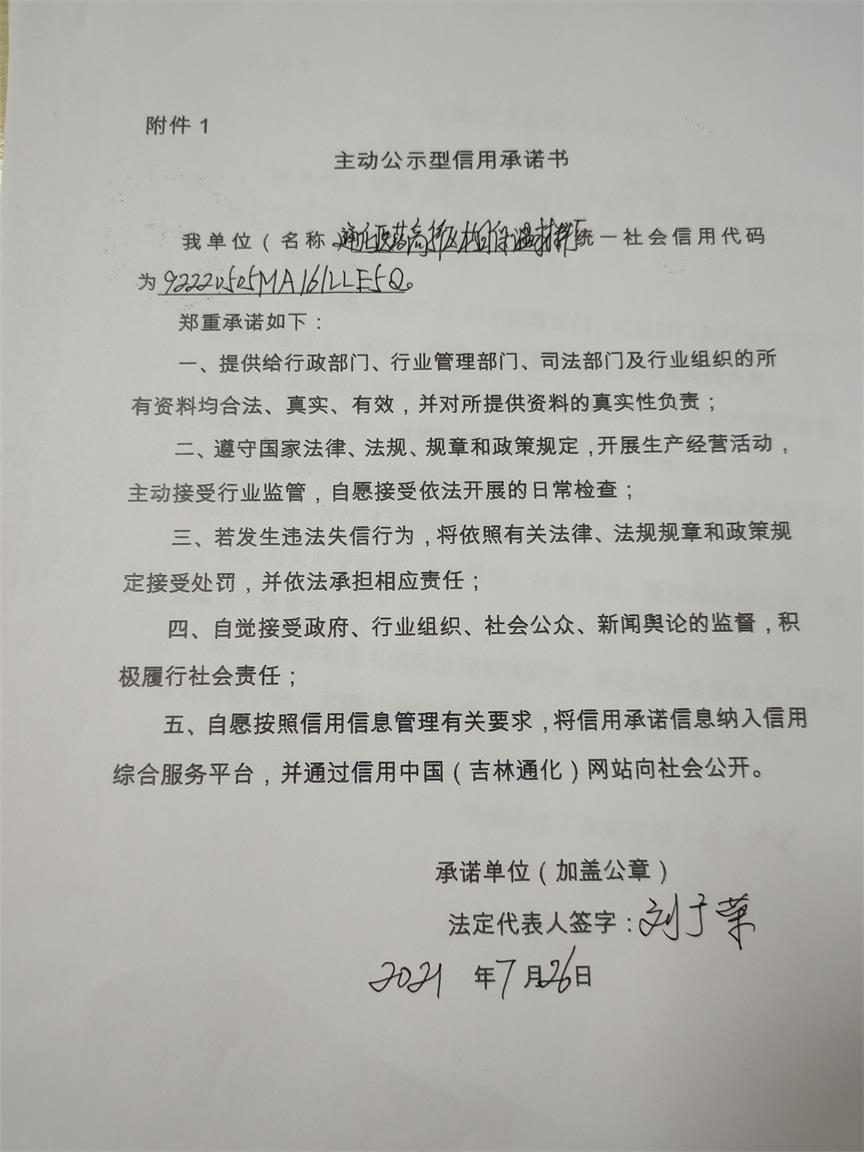 附件 1
主动公示型信用承诺书
我单位（名称 通化医药高新区桓恒保温材料厂统一社会信用代码
为92220505MA161LLE5Q。
郑重承诺如下：
一、提供给行政部门、行业管理部门、司法部门及行业组织的所
有资料均合法、真实、有效，并对所提供资料的真实性负责；
二、遵守国家法律、法规、规章和政策规定，开展生产经营活动，
主动接受行业监管，自愿接受依法开展的日常检查；
三、若发生违法失信行为，将依照有关法律、法规规章和政策规
定接受处罚，并依法承担相应责任；
四、自觉接受政府、行业组织、社会公众、新闻舆论的监督，积
极履行社会责任；
五、自愿按照信用信息管理有关要求，将信用承诺信息纳入信用
综合服务平台，并通过信用中国（吉林通化）网站向社会公开。
承诺单位（加盖公章）
法定代表人签字：刘于荣
2021 年7月26日